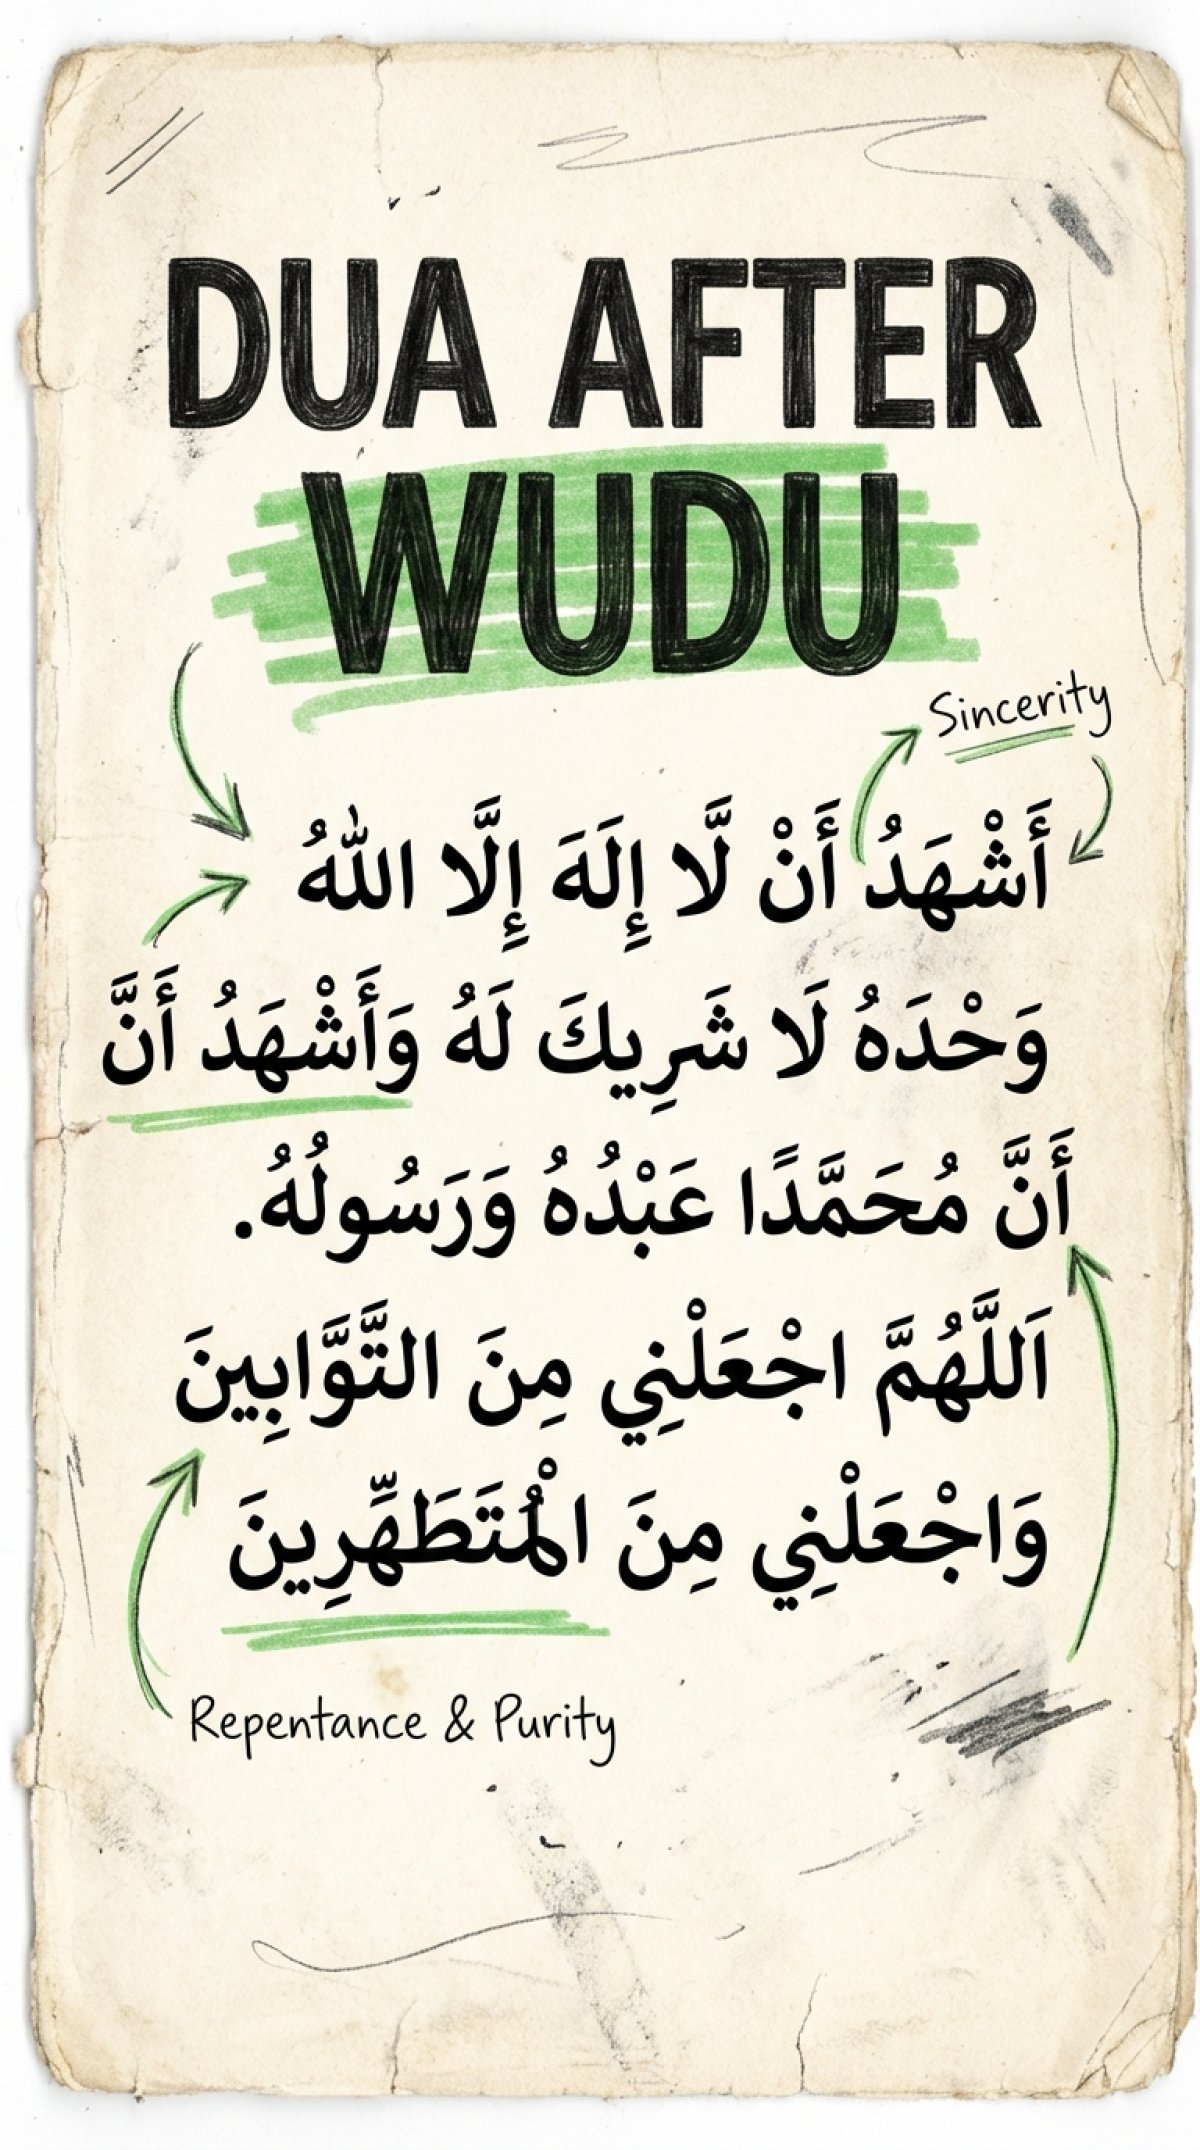 DUA AFTER
WUDU
Sincerity
أَشْهَدُ أَنْ لَّا إِلَهَ إِلَّا اللهُ
وَحْدَهُ لَا شَرِيكَ لَهُ وَأَشْهَدُ أَنَّ
أَنَّ مُحَمَّدًا عَبْدُهُ وَرَسُولُهُ.
اَللَّهُمَّ اجْعَلْنِي مِنَ التَّوَّابِينَ
وَاجْعَلْنِي مِنَ الْمُتَطَهِّرِينَ
Repentance & Purity